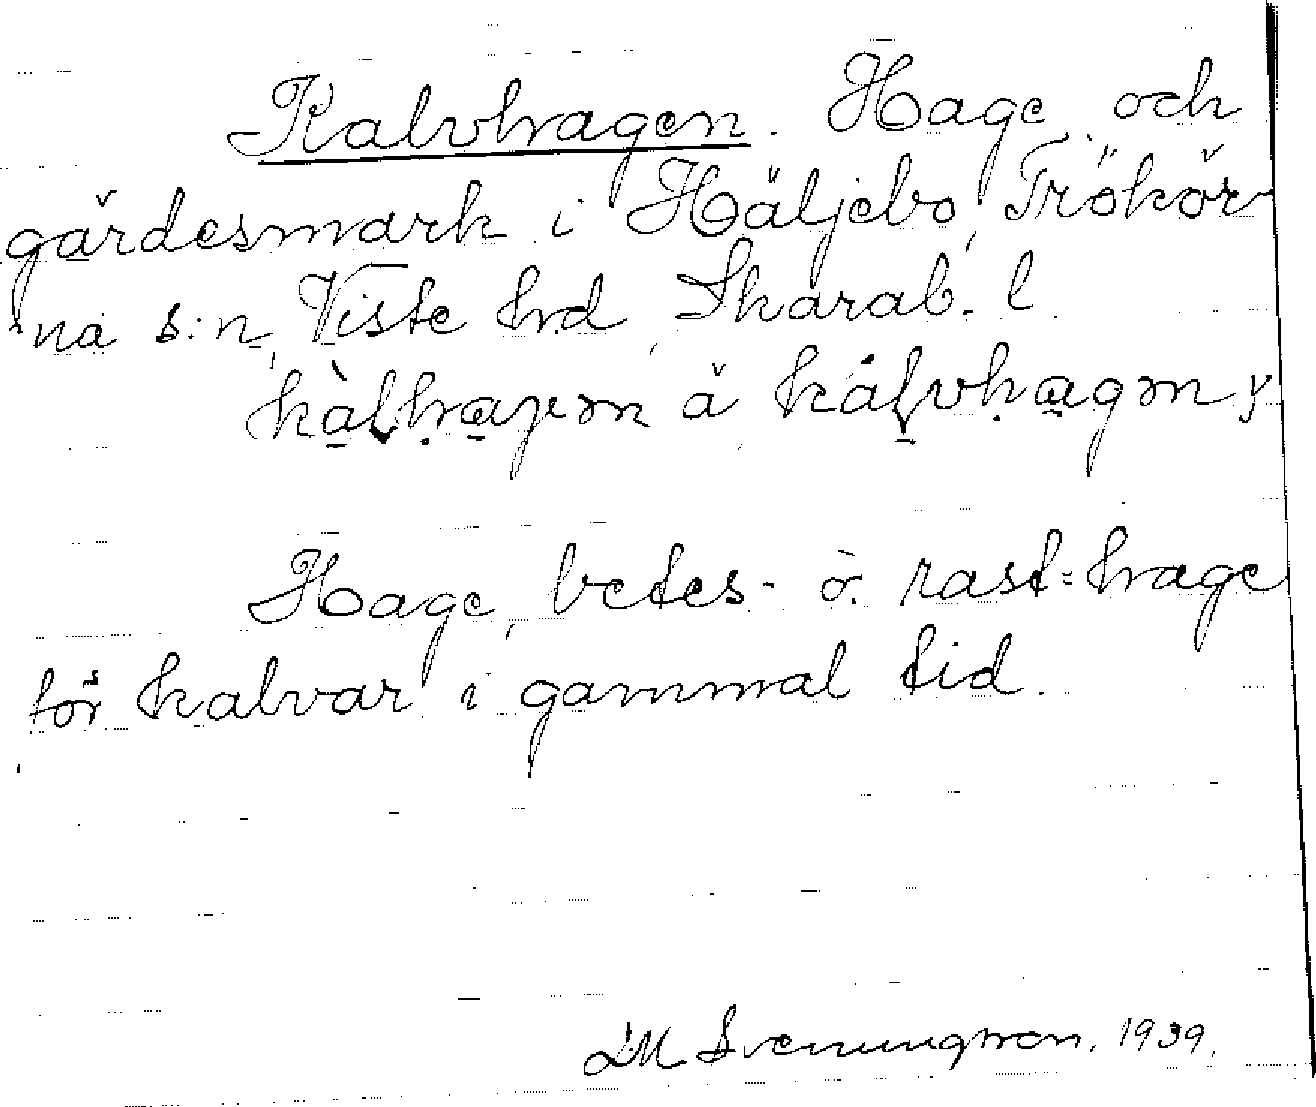 Kalvhagen. Hage och
gärdesmark i Häljebo, Trökör-
na s:n, Viste hd, Skarab. l.
kàlhaγεn å kálvhagεn
Hage, betes- o. rast-hage
för kalvar i gammal tid.
LM Svenungsson. 1939.